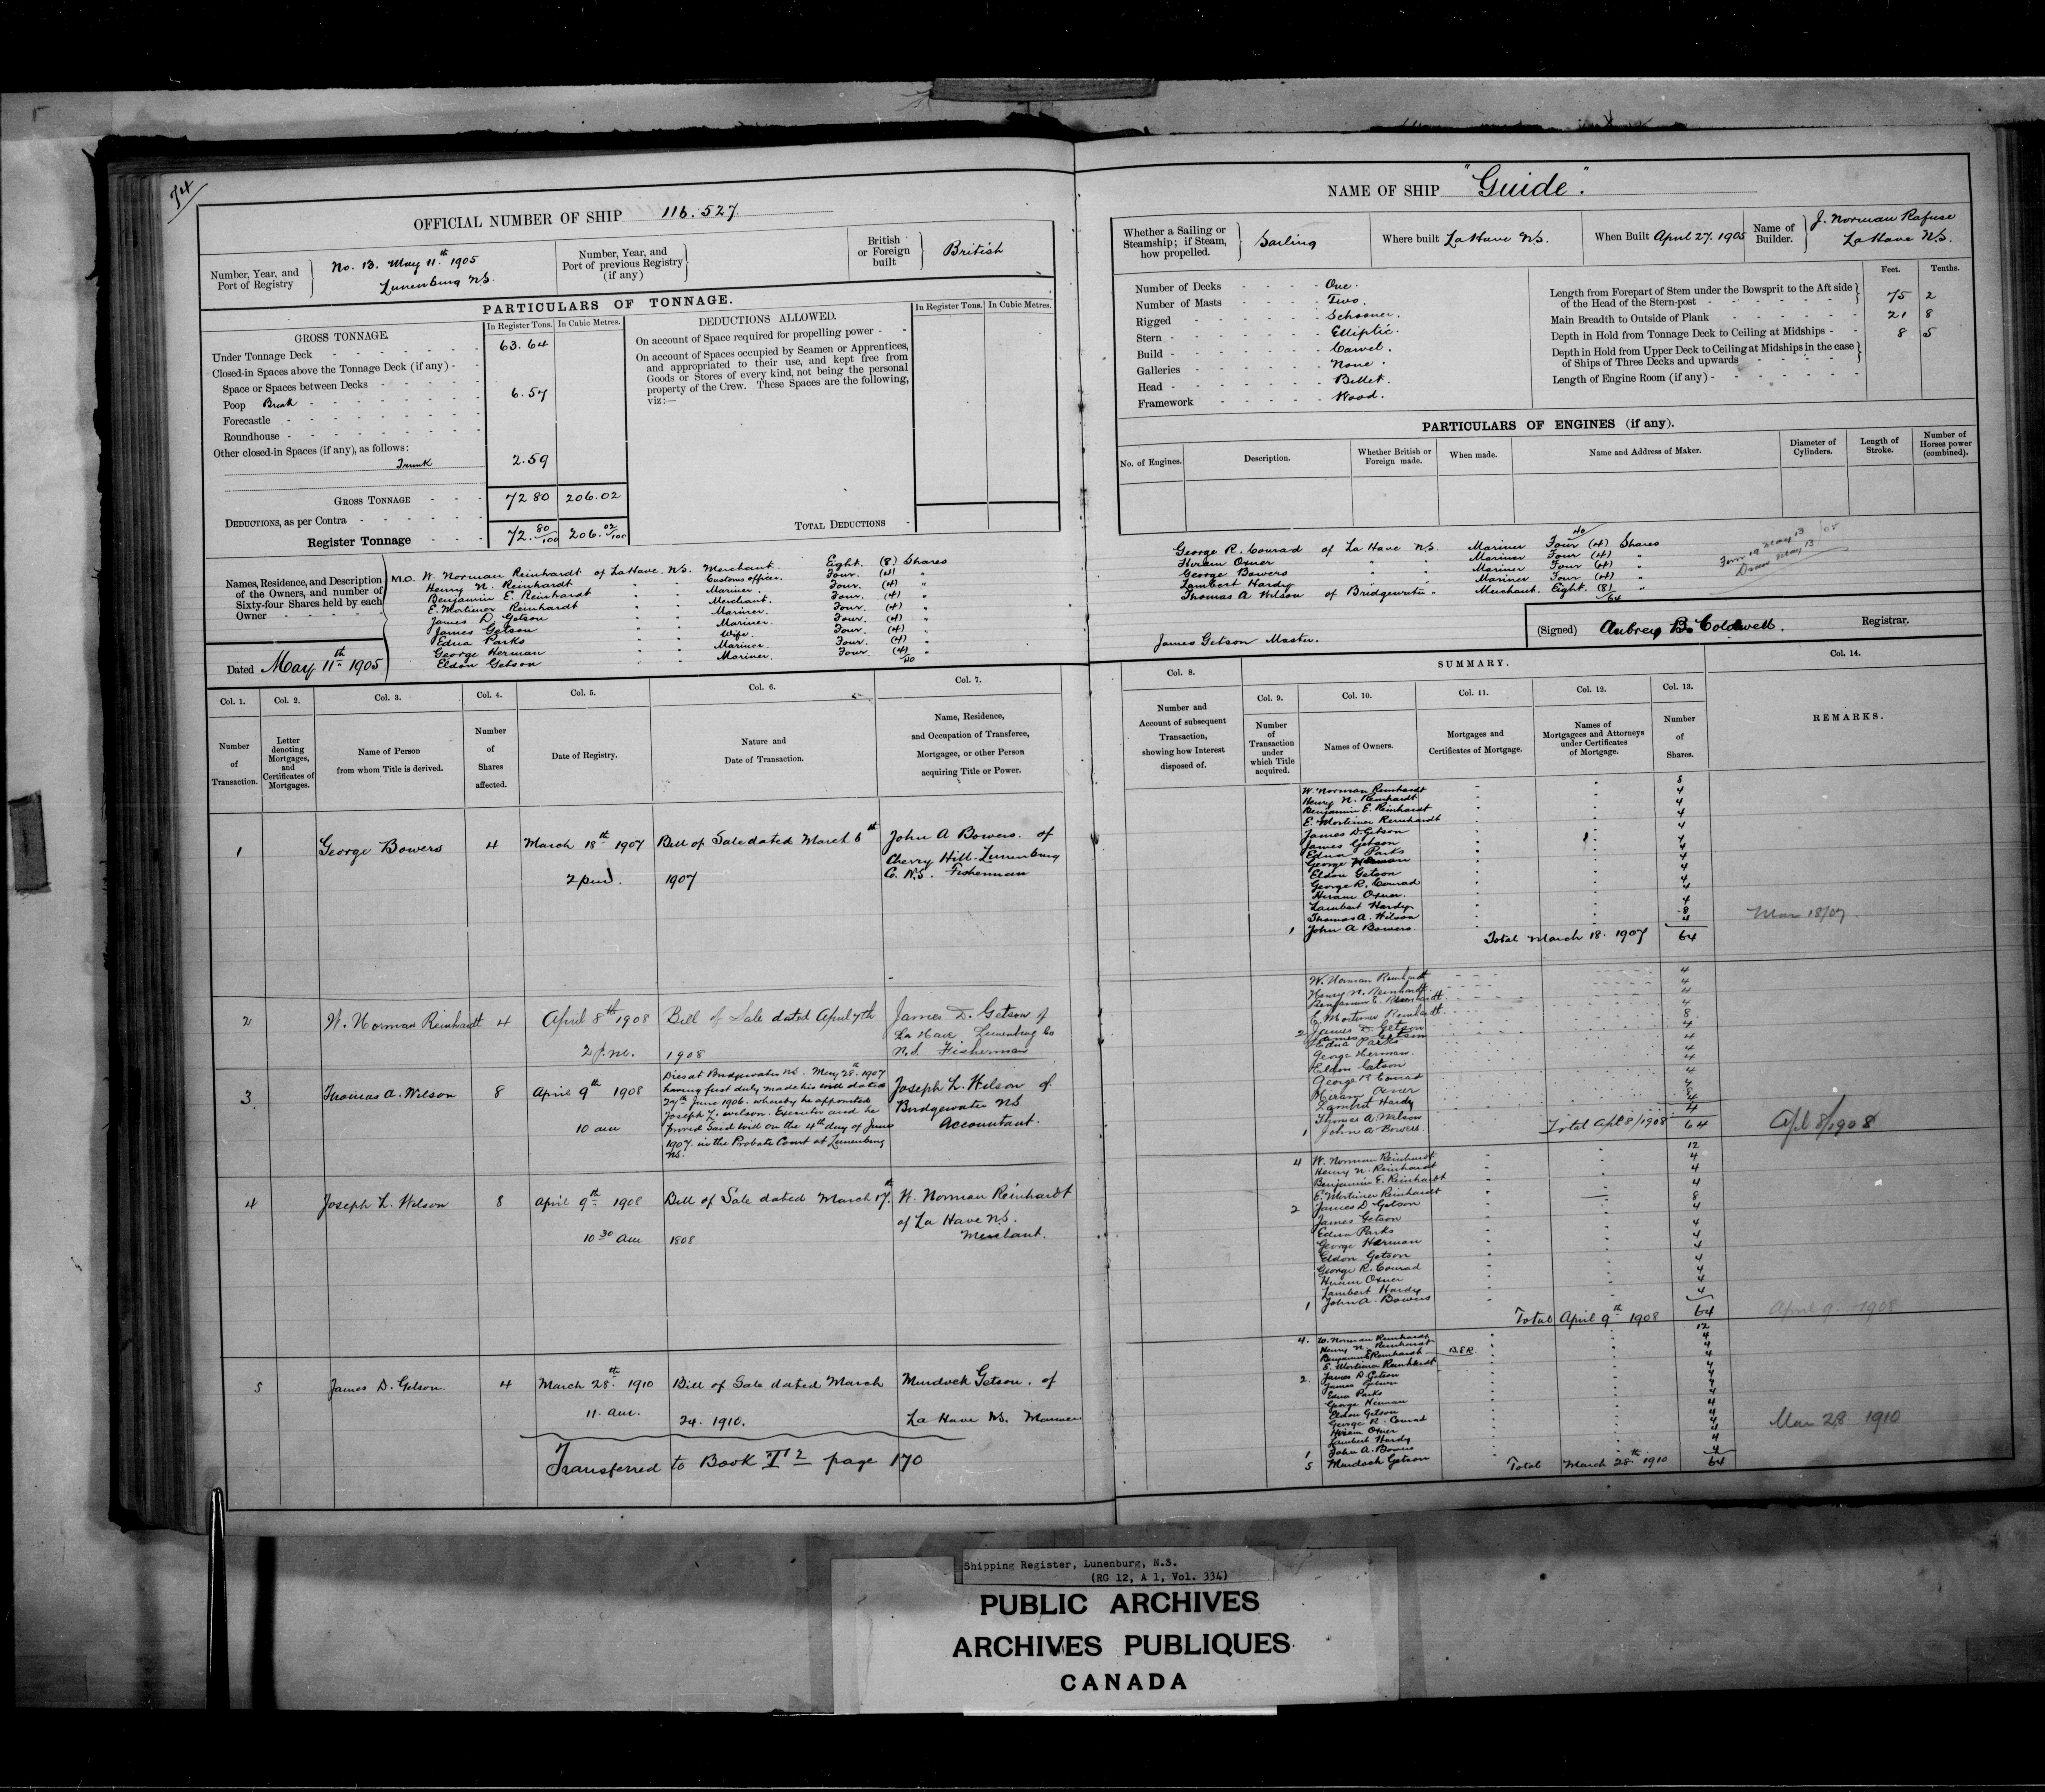 74
OFFICIAL NUMBER OF SHIP 116.527.
Number, Year, and Port of Registry
No. 13. May 11th 1905
Lunenburg N.S.
Number, Year, and Port of previous Registry (if any)
British or Foreign built
British
PARTICULARS OF TONNAGE.
GROSS TONNAGE.
In Register Tons. In Cubic Metres.
Under Tonnage Deck 63.64
Closed-in Spaces above the Tonnage Deck (if any)
Space or Spaces between Decks
Poop Break 6.57
Forecastle
Roundhouse
Other closed-in Spaces (if any), as follows:
Trunk 2.59
GROSS TONNAGE 72 80 206.02
DEDUCTIONS, as per Contra
Register Tonnage 72. 80/100 206. 02/100
DEDUCTIONS ALLOWED.
In Register Tons. In Cubic Metres.
On account of Space required for propelling power
On account of Spaces occupied by Seamen or Apprentices, and appropriated to their use, and kept free from Goods or Stores of every kind, not being the personal property of the Crew. These Spaces are the following, viz:—
TOTAL DEDUCTIONS
Names, Residence, and Description of the Owners, and number of Sixty-four Shares held by each Owner
M.O. W. Norman Reinhardt of LaHave. N.S. Merchant. Eight. (8) Shares
Henry N. Reinhardt " " Customs officer. Four. (4) "
Benjamin E. Reinhardt " " Mariner. Four. (4) "
E. Mortimer Reinhardt " " Merchant. Four. (4) "
James D. Getson " " Mariner. Four. (4) "
James Getson " " Mariner. Four. (4) "
Edna Parks " " Wife. Four. (4) "
George Herman " " Mariner. Four. (4) "
Eldon Getson " " Mariner. Four. (4) "
40
Dated May 11th 1905
Col. 1. Col. 2. Col. 3. Col. 4. Col. 5. Col. 6. Col. 7.
Number of Transaction.
Letter denoting Mortgages, and Certificates of Mortgages.
Name of Person from whom Title is derived.
Number of Shares affected.
Date of Registry.
Nature and Date of Transaction.
Name, Residence, and Occupation of Transferee, Mortgagee, or other Person acquiring Title or Power.
1 George Bowers 4 March 18th 1907 Bill of Sale dated March 6th John A Bowers. of
2 p.m. 1907 Cherry Hill. Lunenburg
Co. N.S. Fisherman
2 W. Norman Reinhardt 4 April 8th 1908 Bill of Sale dated April 7th James D. Getson of
La Have Lunenburg Co
2 p.m. 1908 N.S. Fisherman
3 Thomas A. Wilson 8 April 9th 1908
10 am
Dies at Bridgewater N.S. May 28th 1907
having first duly made his will dated
27th June 1906. whereby he appointed
Joseph L. Wilson. Executor and he
proved said will on the 4th day of June
1907. in the Probate Court at Lunenburg
N.S.
Joseph L. Wilson of
Bridgewater N.S
Accountant.
4 Joseph L. Wilson 8 April 9th 1908 Bill of Sale dated March 17th W. Norman Reinhardt
of La Have N.S.
10 30 am 1808 Merchant.
5 James D. Getson 4 March 28th 1910 Bill of Sale dated March Murdock Getson. of
11. am. 24. 1910. La Have N.S. Mariner
Transferred to Book T 2 page 170
NAME OF SHIP "Guide".
Whether a Sailing or Steamship; if Steam, how propelled.
Sailing
Where built LaHave N.S.
When Built April 27. 1905
Name of Builder.
J. Norman Rafuse
LaHave N.S.
Number of Decks One.
Number of Masts Two.
Rigged Schooner.
Stern Elliptic.
Build Carvel.
Galleries None.
Head Billet.
Framework Wood.
Feet. Tenths.
Length from Forepart of Stem under the Bowsprit to the Aft side of the Head of the Stern-post 75 2
Main Breadth to Outside of Plank 21 8
Depth in Hold from Tonnage Deck to Ceiling at Midships 8 5
Depth in Hold from Upper Deck to Ceiling at Midships in the case of Ships of Three Decks and upwards
Length of Engine Room (if any)
PARTICULARS OF ENGINES (if any).
No. of Engines. Description. Whether British or Foreign made. When made. Name and Address of Maker. Diameter of Cylinders. Length of Stroke. Number of Horses power (combined).
40
George R. Conrad of La Have N.S. Mariner Four (4) Shares
Hiram Oxner " " Mariner Four (4) "
George Bowers " " Mariner Four (4) "
Lambert Hardy " " Mariner Four (4) "
Thomas A Wilson of Bridgewater " Merchant. Eight. (8) "
64
James Getson Master.
(Signed) Aubrey B. Coldwell. Registrar.
SUMMARY.
Col. 8. Col. 9. Col. 10. Col. 11. Col. 12. Col. 13. Col. 14.
Number and Account of subsequent Transaction, showing how Interest disposed of.
Number of Transaction under which Title acquired.
Names of Owners.
Mortgages and Certificates of Mortgage.
Names of Mortgagees and Attorneys under Certificates of Mortgage.
Number of Shares.
REMARKS.
W. Norman Reinhardt 8
Henry N. Reinhardt 4
Benjamin E. Reinhardt 4
E. Mortimer Reinhardt 4
James D. Getson 4
James Getson 4
Edna Parks 4
George Herman 4
Eldon Getson 4
George R. Conrad 4
Hiram Oxner. 4
Lambert Hardy 4
Thomas A. Wilson 8
1 John A Bowers. 4
Total March 18. 1907 64
Mar 18/07
W. Norman Reinhardt 4
Henry N. Reinhardt 4
Benjamin E. Reinhardt 4
E. Mortimer Reinhardt 4
2 James D. Getson 8
James Getson 4
Edna Parks 4
George Herman. 4
Eldon Getson 4
George R Conrad 4
Hiram Oxner 4
Lambert Hardy 4
Thomas A. Wilson
1 John A Bowers. 4
Total Apl 8/1908 64
Apl 8/1908
4 W. Norman Reinhardt 12
Henry N. Reinhardt 4
Benjamin E. Reinhardt 4
E. Mortimer Reinhardt 4
2 James D Getson 8
James Getson 4
Edna Parks 4
George Herman 4
Eldon Getson 4
George R. Conrad 4
Hiram Oxner 4
Lambert Hardy 4
1 John A. Bowers 4
Total April 9th 1908 64
April 9. 1908
4. W. Norman Reinhardt 12
Henry N. Reinhardt 4
Benjamin E Reinhardt B.E.R. 4
E. Mortimer Reinhardt 4
2. James D Getson 4
James Getson 4
Edna Parks 4
George Herman 4
Eldon Getson 4
George R. Conrad 4
Hiram Oxner 4
Lambert Hardy 4
1 John A. Bowers 4
5 Murdoch Getson 4
Total March 28th 1910 64
Mar 28 1910
Shipping Register, Lunenburg, N.S.
(RG 12, A 1, Vol. 334)
PUBLIC ARCHIVES
ARCHIVES PUBLIQUES
CANADA